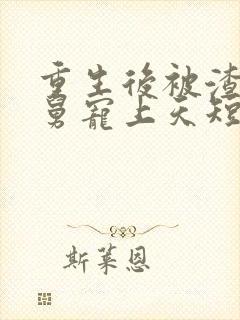 重生後被渣
舅寵上天短
斯萊恩